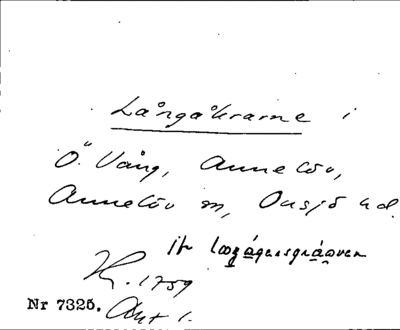 Långåkrarne i
Ö. Vång, Annelöv,
Annelöv sn, Onsjö hd.
K. 1759
Nr 7325. Akt 1.